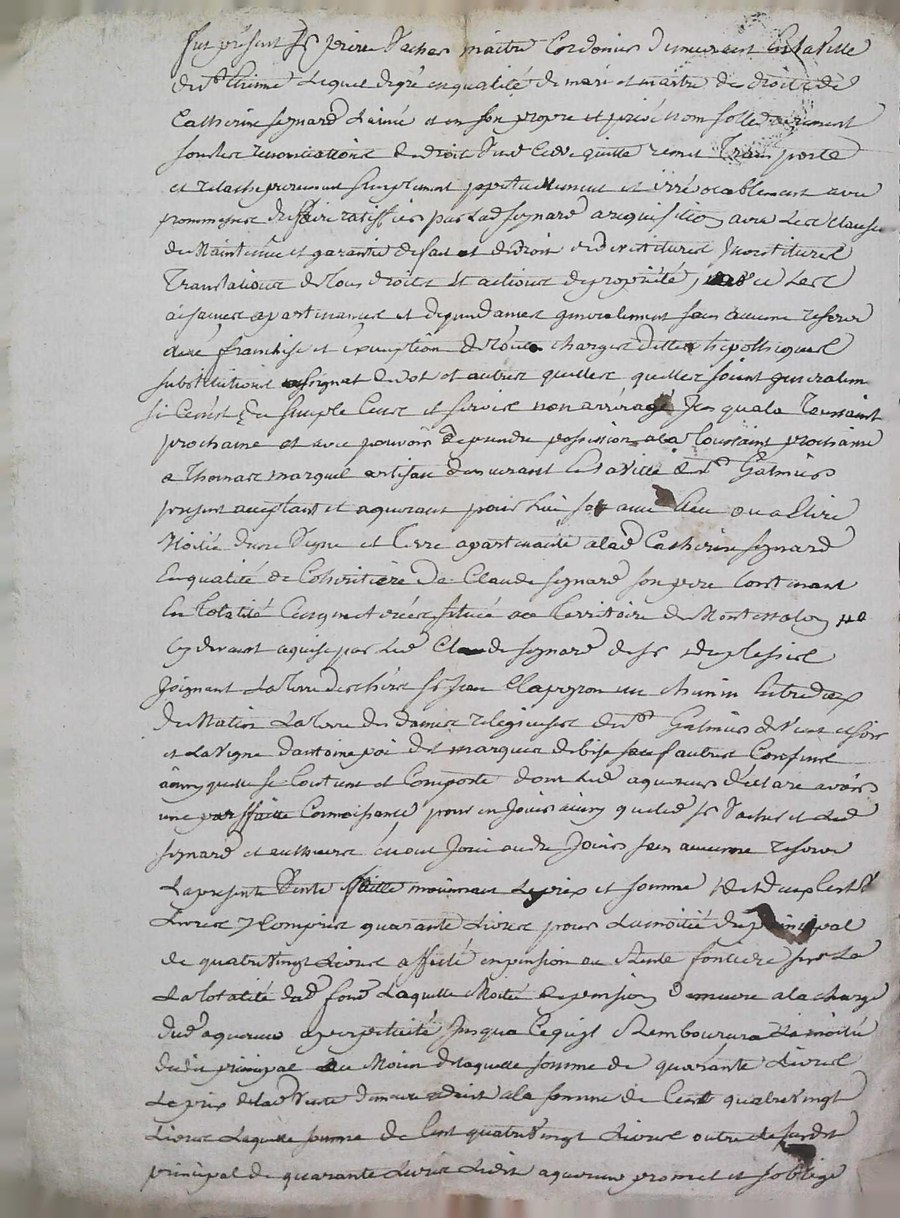 fut présent Sr pierre Vachez maitre Cordonier demeurant en la ville
de St Etienne Lequel de gré en qualité de mari et maitre des droits de
Catherine seynard Lainé et en son propre et privé nom solidairement
sous les renonciations de droit Vend Cede quitte remet Transporte
et relache purement simplement perpetuellement et irrévocablement avec
prommesse de faire ratiffier par Lad seynard a requisition avec Les Clauses
de Maintenue et garantie de fait et de droit devetitures investitures
Translations de tous droits et actions de propriété, ce Les
aisances apartenances et dependances generalement sans aucune reserve
avec franchise et exemption de toutes charges dettes hipotheques
substitutions et autres quelles quelles soient generalem
si Cenest Du simple Cens et servis non arreragé Jusqua La Toussaint
prochaine et avec pouvoir de prendre possession a la Toussaint prochaine
a Thomas marquet artisan demeurant en la Ville de St Galmier
present acceptant et aquerant pour Lui son amie élu ou a Elire
Moitié d'une Vigne et Terre apartenante a lad Catherine seynard
En qualité de Cohéritière De Claude seynard son pere Contenant
En Totalité située au Territoire de
cy devant aquise par Led Claude seynard de Sr duplessis
Joignant La Terre des hoirs Sr Jean Clapeyron un chemin Entre deux
de Matin La terre des dames religieuses de St Galmier de Vent et soir
et La Vigne d'antoine des marques de bise sauf autres Confins
ainsy quelle se Contient et Comporte dont Led aquereur déclare avoir
une parffaite Connoissance, pour en Jouir ainsy que led Sr Vachez et Lad
seynard et autheurs en ont Joui ou du Jouir sans aucune reserve
La presente Vente faitte moienant Le prix et somme de deux Cent
Livres y Compris quarante Livres pour La moitié du principal
de quatre vingt Livres affecté en pension ou Rente fonciere sur La
La totalité dud fond Laquelle Moitié de pension demeure a la charge
dud aquereur a perpetuité Jusqua Ce quil Rembourcera La moitié
dudit principal au Moien de laquelle somme de quarante Livres
Le prix de lad Vente demeure reduit a la somme de Cent quatre vingt
Livres Laquelle somme de Cent quatre vingt Livres outre le susdit
principal de quarante Livres Ledit aquereur promet et soblige